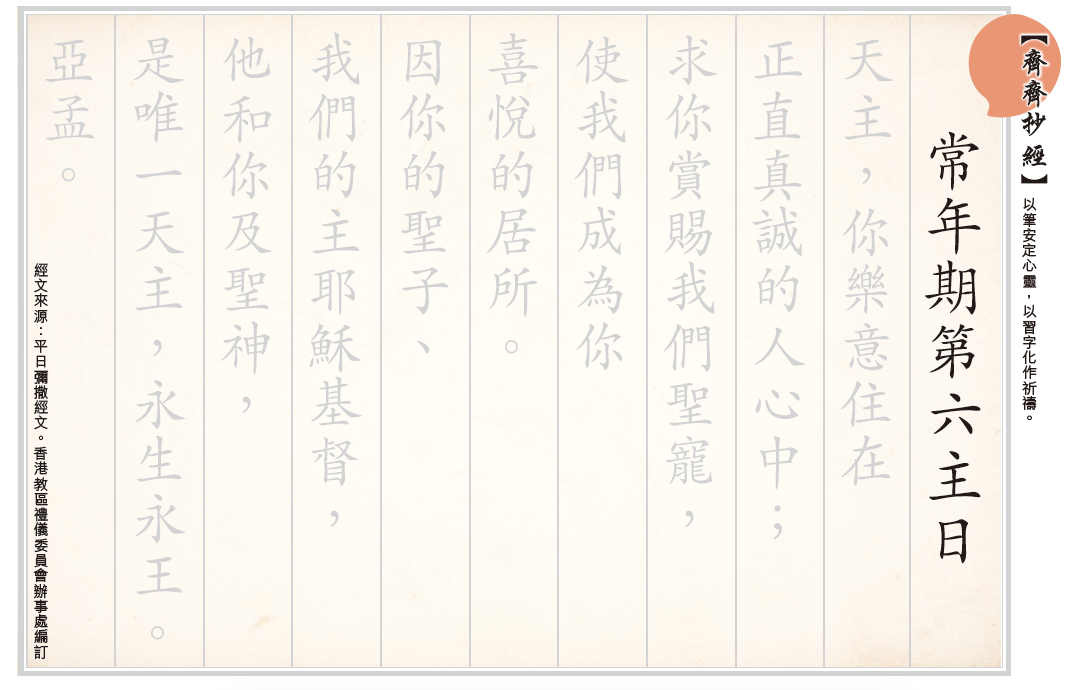 【齊齊抄經】以筆安定心靈，以習字化作祈禱。
常年期第六主日
天主，你樂意住在
正直真誠的人心中；
求你賞賜我們聖寵，
使我們成為你
喜悅的居所。
因你的聖子、
我們的主耶穌基督，
他和你及聖神，
是唯一天主，永生永王。
亞孟。
經文來源：平日彌撒經文。香港教區禮儀委員會辦事處編訂